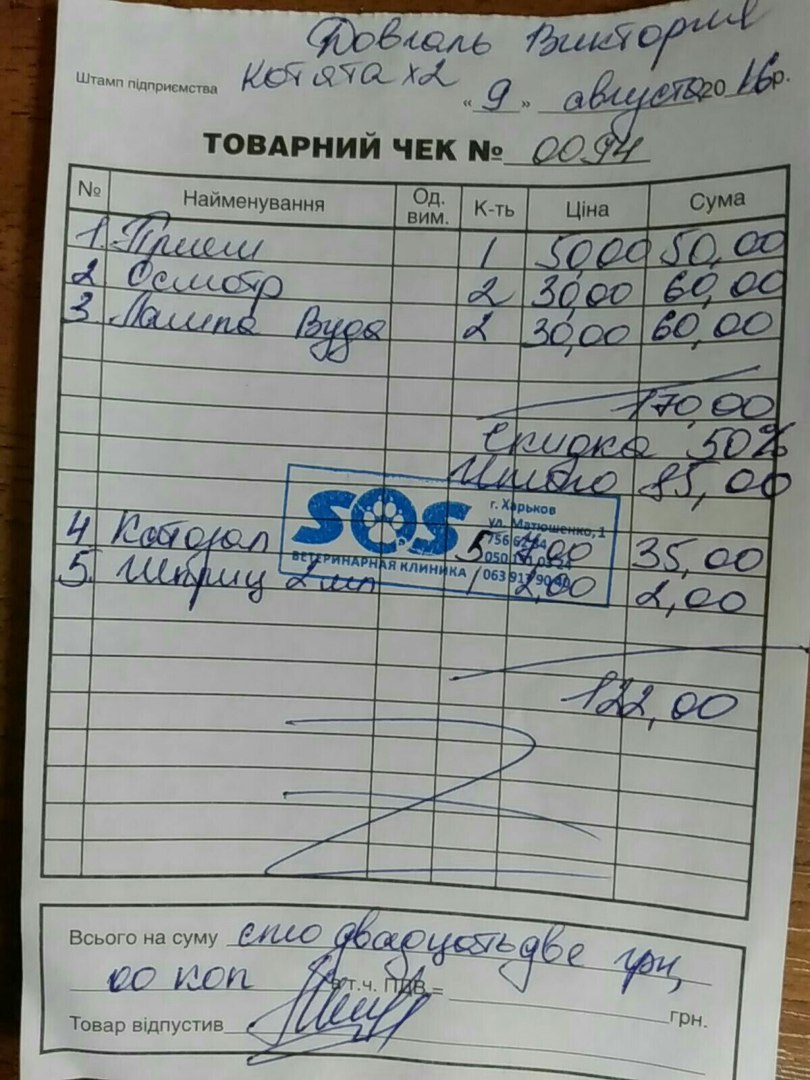 Довгаль Виктория
Штамп підприємства Котята x2
« 9 » августа 20 16 р.
ТОВАРНИЙ ЧЕК № 0094
№ Найменування Од. вим. К-ть Ціна Сума
1 Прием 1 50,00 50,00
2 Осмотр 2 30,00 60,00
3 Лампа Вуда 2 30,00 60,00
170,00
Скидка 50%
Итого 85,00
SOS
ВЕТЕРИНАРНАЯ КЛИНИКА
г. Харьков
ул. Матюшенко, 1
4 Катозал 5 7,00 35,00
5 Шприц 2 мл 1 2,00 2,00
122,00
Всього на суму сто двадцать две грн
00 коп в т.ч. ПДВ = грн.
Товар відпустив